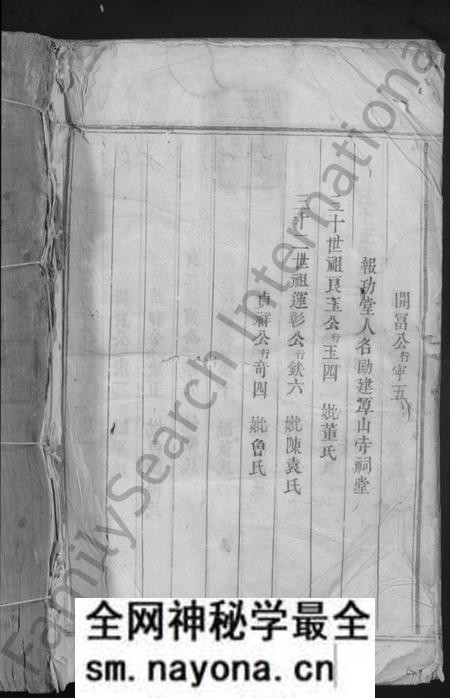 開富公行寧五
報功堂人名勛建潭山寺祠堂
三十世祖良玉公行玉四 妣董氏
三十二世祖運彰公行欽六 妣陳袁氏
貞祥公行奇四 妣魯氏
FamilySearch International
全网神秘学最全
sm.nayona.cn